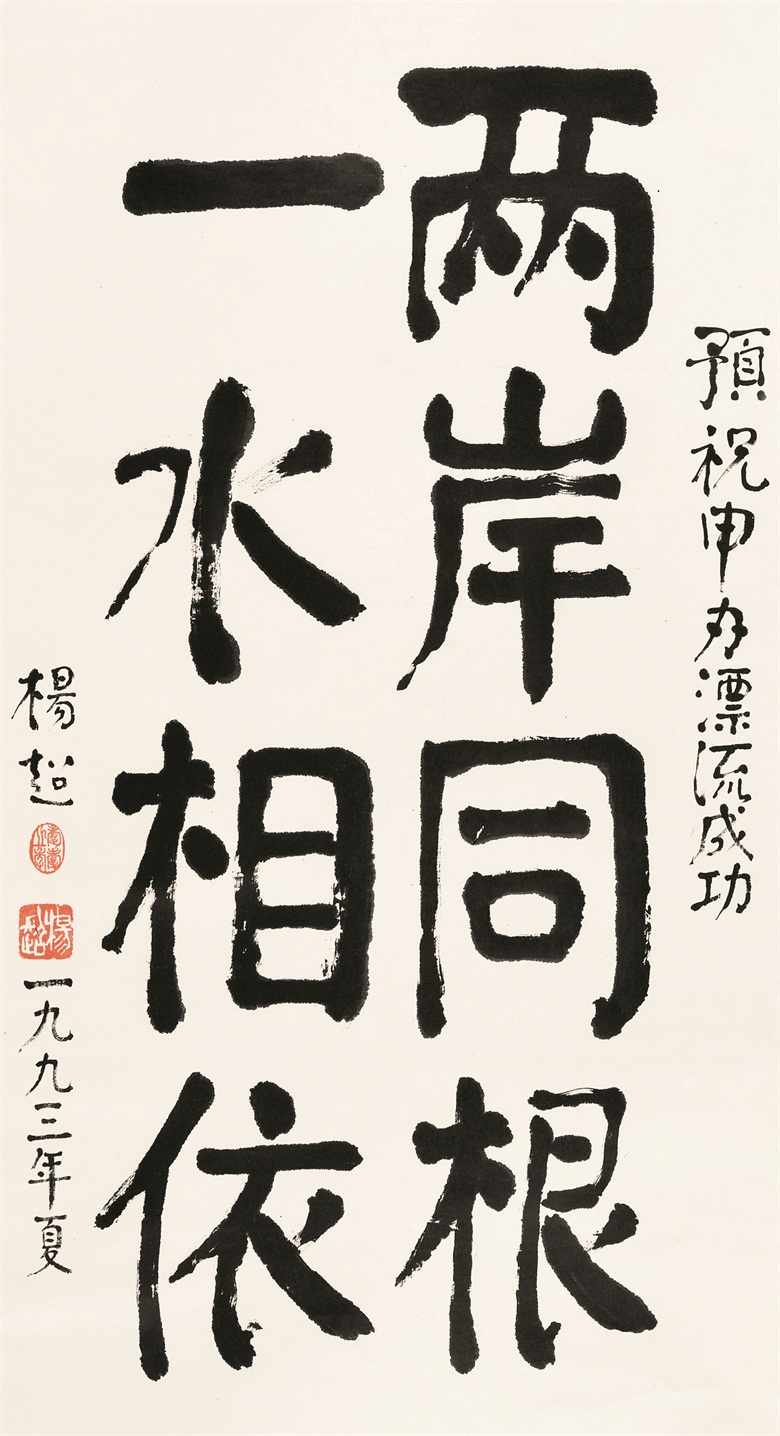 預祝申办漂流成功
两岸同根
一水相依
楊超
楊超
一九九三年夏